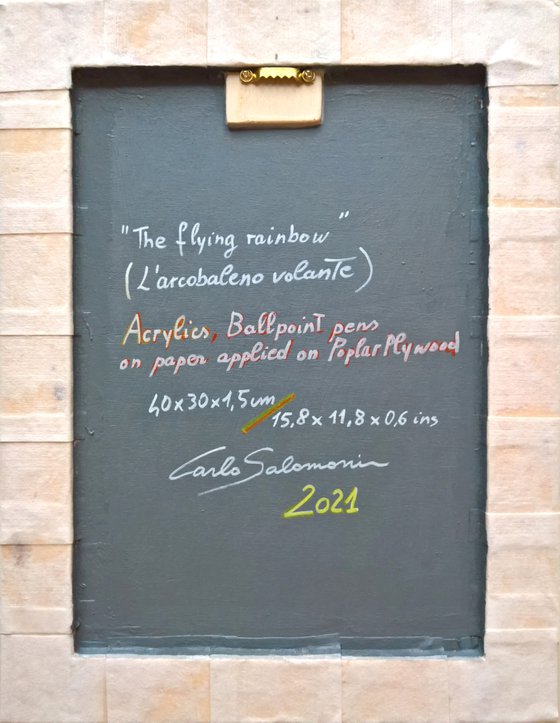 "The flying rainbow"
(L'arcobaleno volante)
Acrylics, Ballpoint pens
on paper applied on Poplar Plywood
40x30x1,5 cm
15,8 x 11,8 x 0,6 ins
Carlo Salomoni
2021